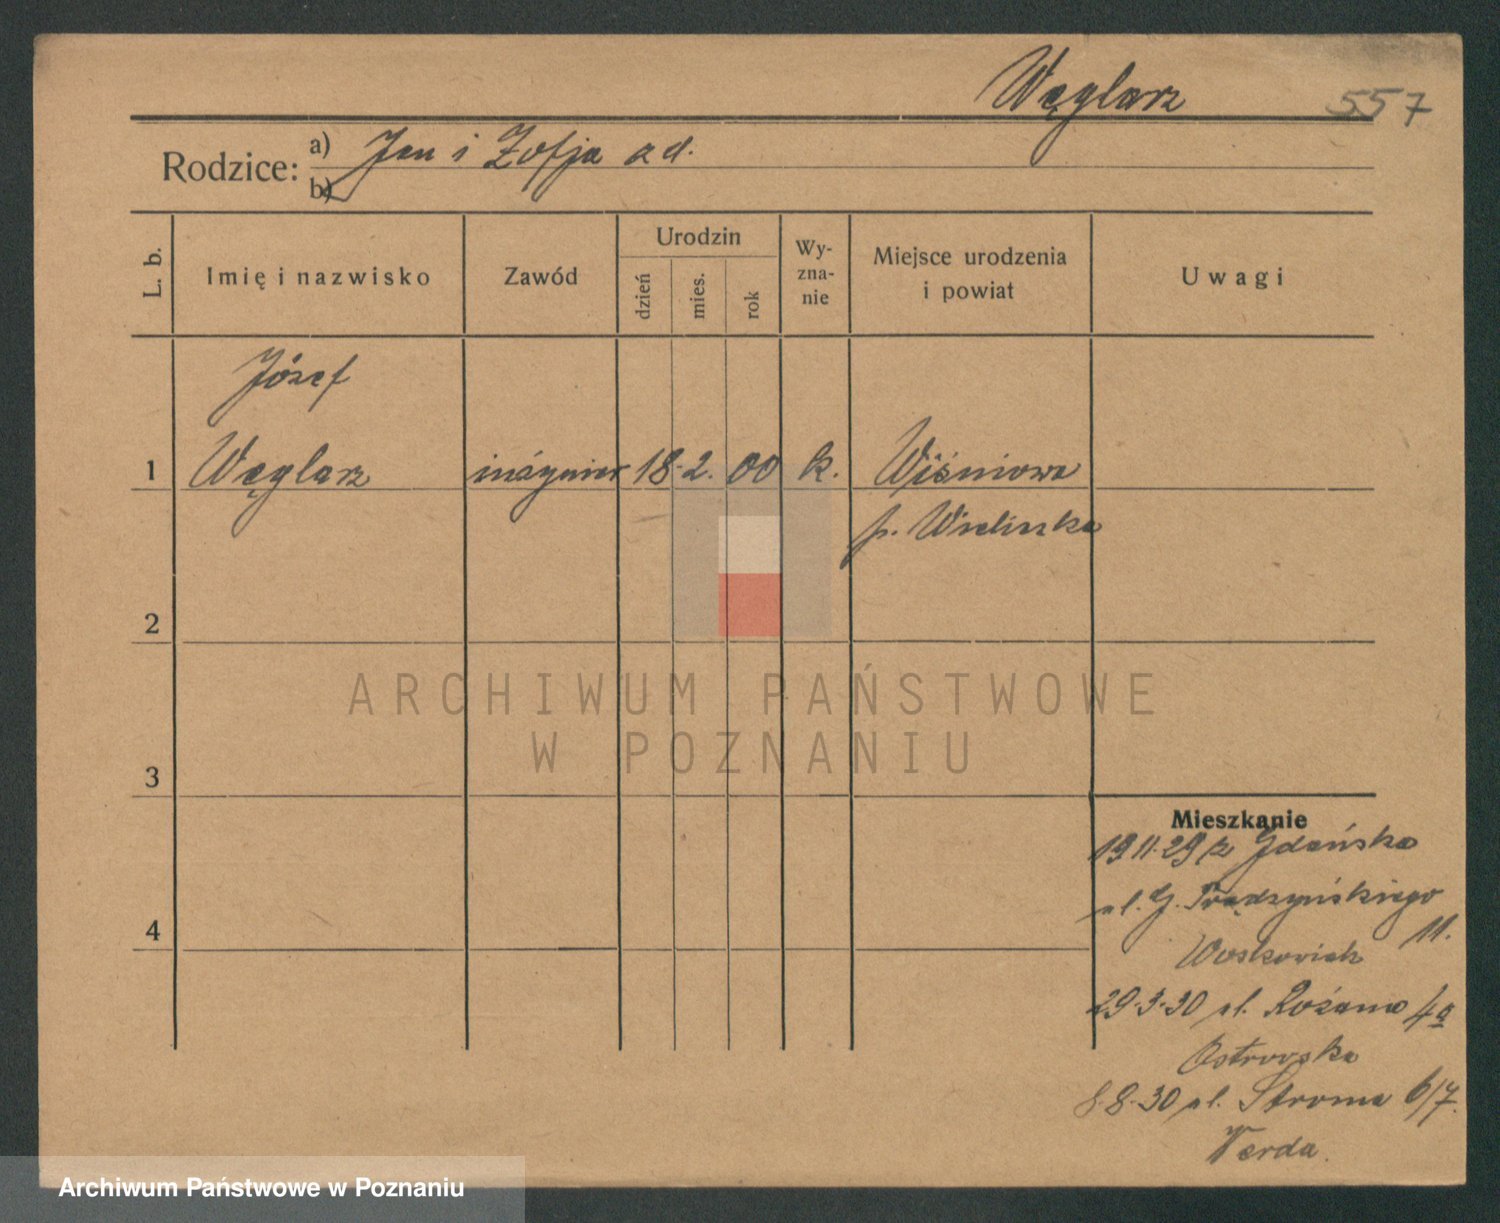 Węglarz 557
Rodzice: a) Jan i Zofja z d.
b)
L. b.
Imię i nazwisko
Zawód
Urodzin
dzień
mies.
rok
Wy-
zna-
nie
Miejsce urodzenia
i powiat
Uwagi
Józef
1 Węglarz inżynier 18. 2. 00 k. Wiśniowa
p. Wieliczka
2
ARCHIWUM PAŃSTWOWE
W POZNANIU
3
Mieszkanie
19.11.29 z Gdańska
ul. G. Prądzyńskiego
11.
29.3.30 ul. Różana 4a
Ostrowska
8.8.30 ul. Stroma 6/7.
Verda.
4
Archiwum Państwowe w Poznaniu